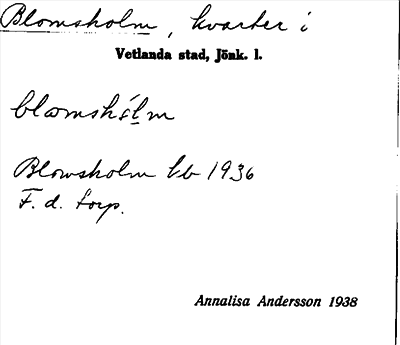 Blomsholm, kvarter i
Vetlanda stad, Jönk. l.
blomshólm
Blomsholm kb 1936
F. d. torp.
Annalisa Andersson 1938